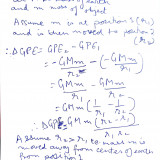 and m mass of object
Assume m is at position 1 (r₁)
and is then moved to position 2 (r₂)
∴ ΔGPE = GPE₂ - GPE₁
= -GMm/r₂ - (-GMm/r₁)
= GMm/r₁ - GMm/r₂
= GMm (1/r₁ - 1/r₂)
∴ ΔGPE = GMm
Assume r₂ > r₁ so mass m is
moved away from center of earth
from position 1